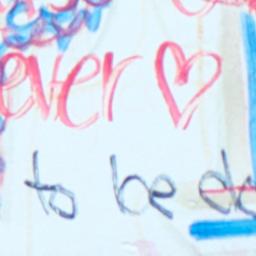 ever ♡
to be